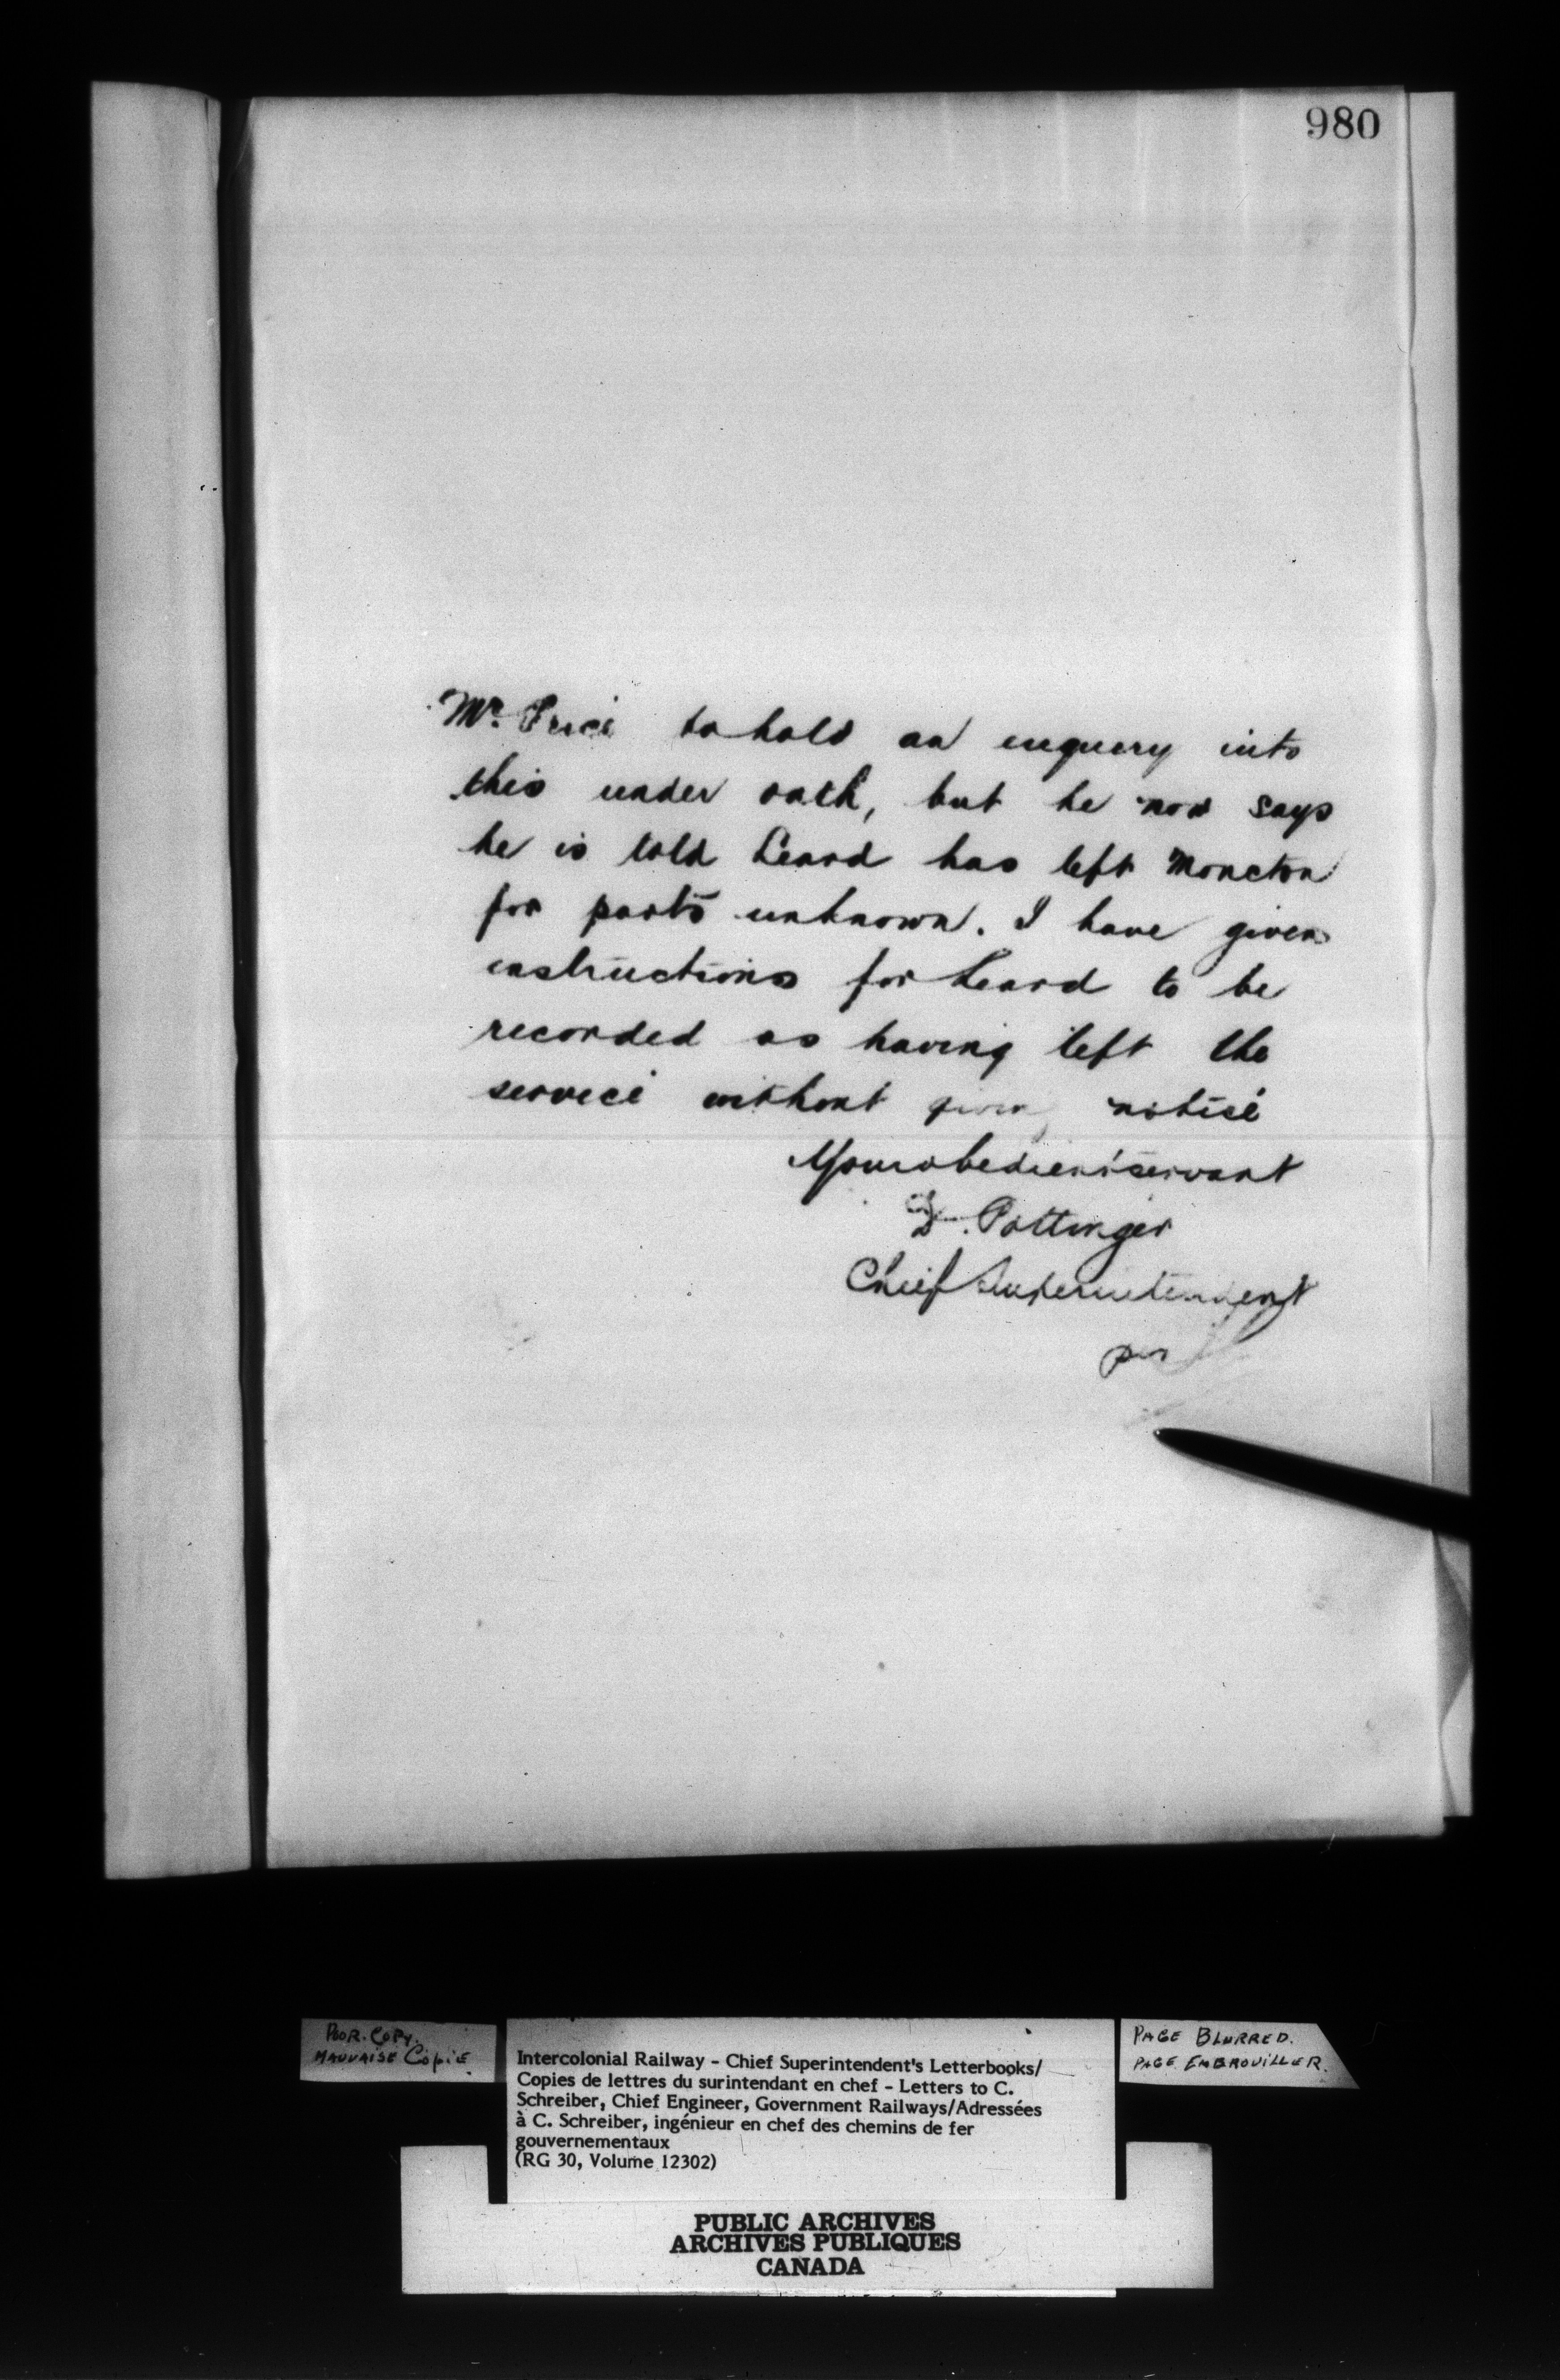 980
Mr. Price to hold an enquiry into
this under oath, but he now says
he is told Leard has left Moncton
for parts unknown. I have given
instructions for Leard to be
recorded as having left the
service without giving notice
Your obedient servant
D. Pottinger
Chief Superintendent
per
POOR COPY.
MAUVAISE COPIE
Intercolonial Railway - Chief Superintendent's Letterbooks/
Copies de lettres du surintendant en chef - Letters to C.
Schreiber, Chief Engineer, Government Railways/Adressées
à C. Schreiber, ingénieur en chef des chemins de fer
gouvernementaux
(RG 30, Volume 12302)
PAGE BLURRED.
PAGE EMBROUILLER.
PUBLIC ARCHIVES
ARCHIVES PUBLIQUES
CANADA